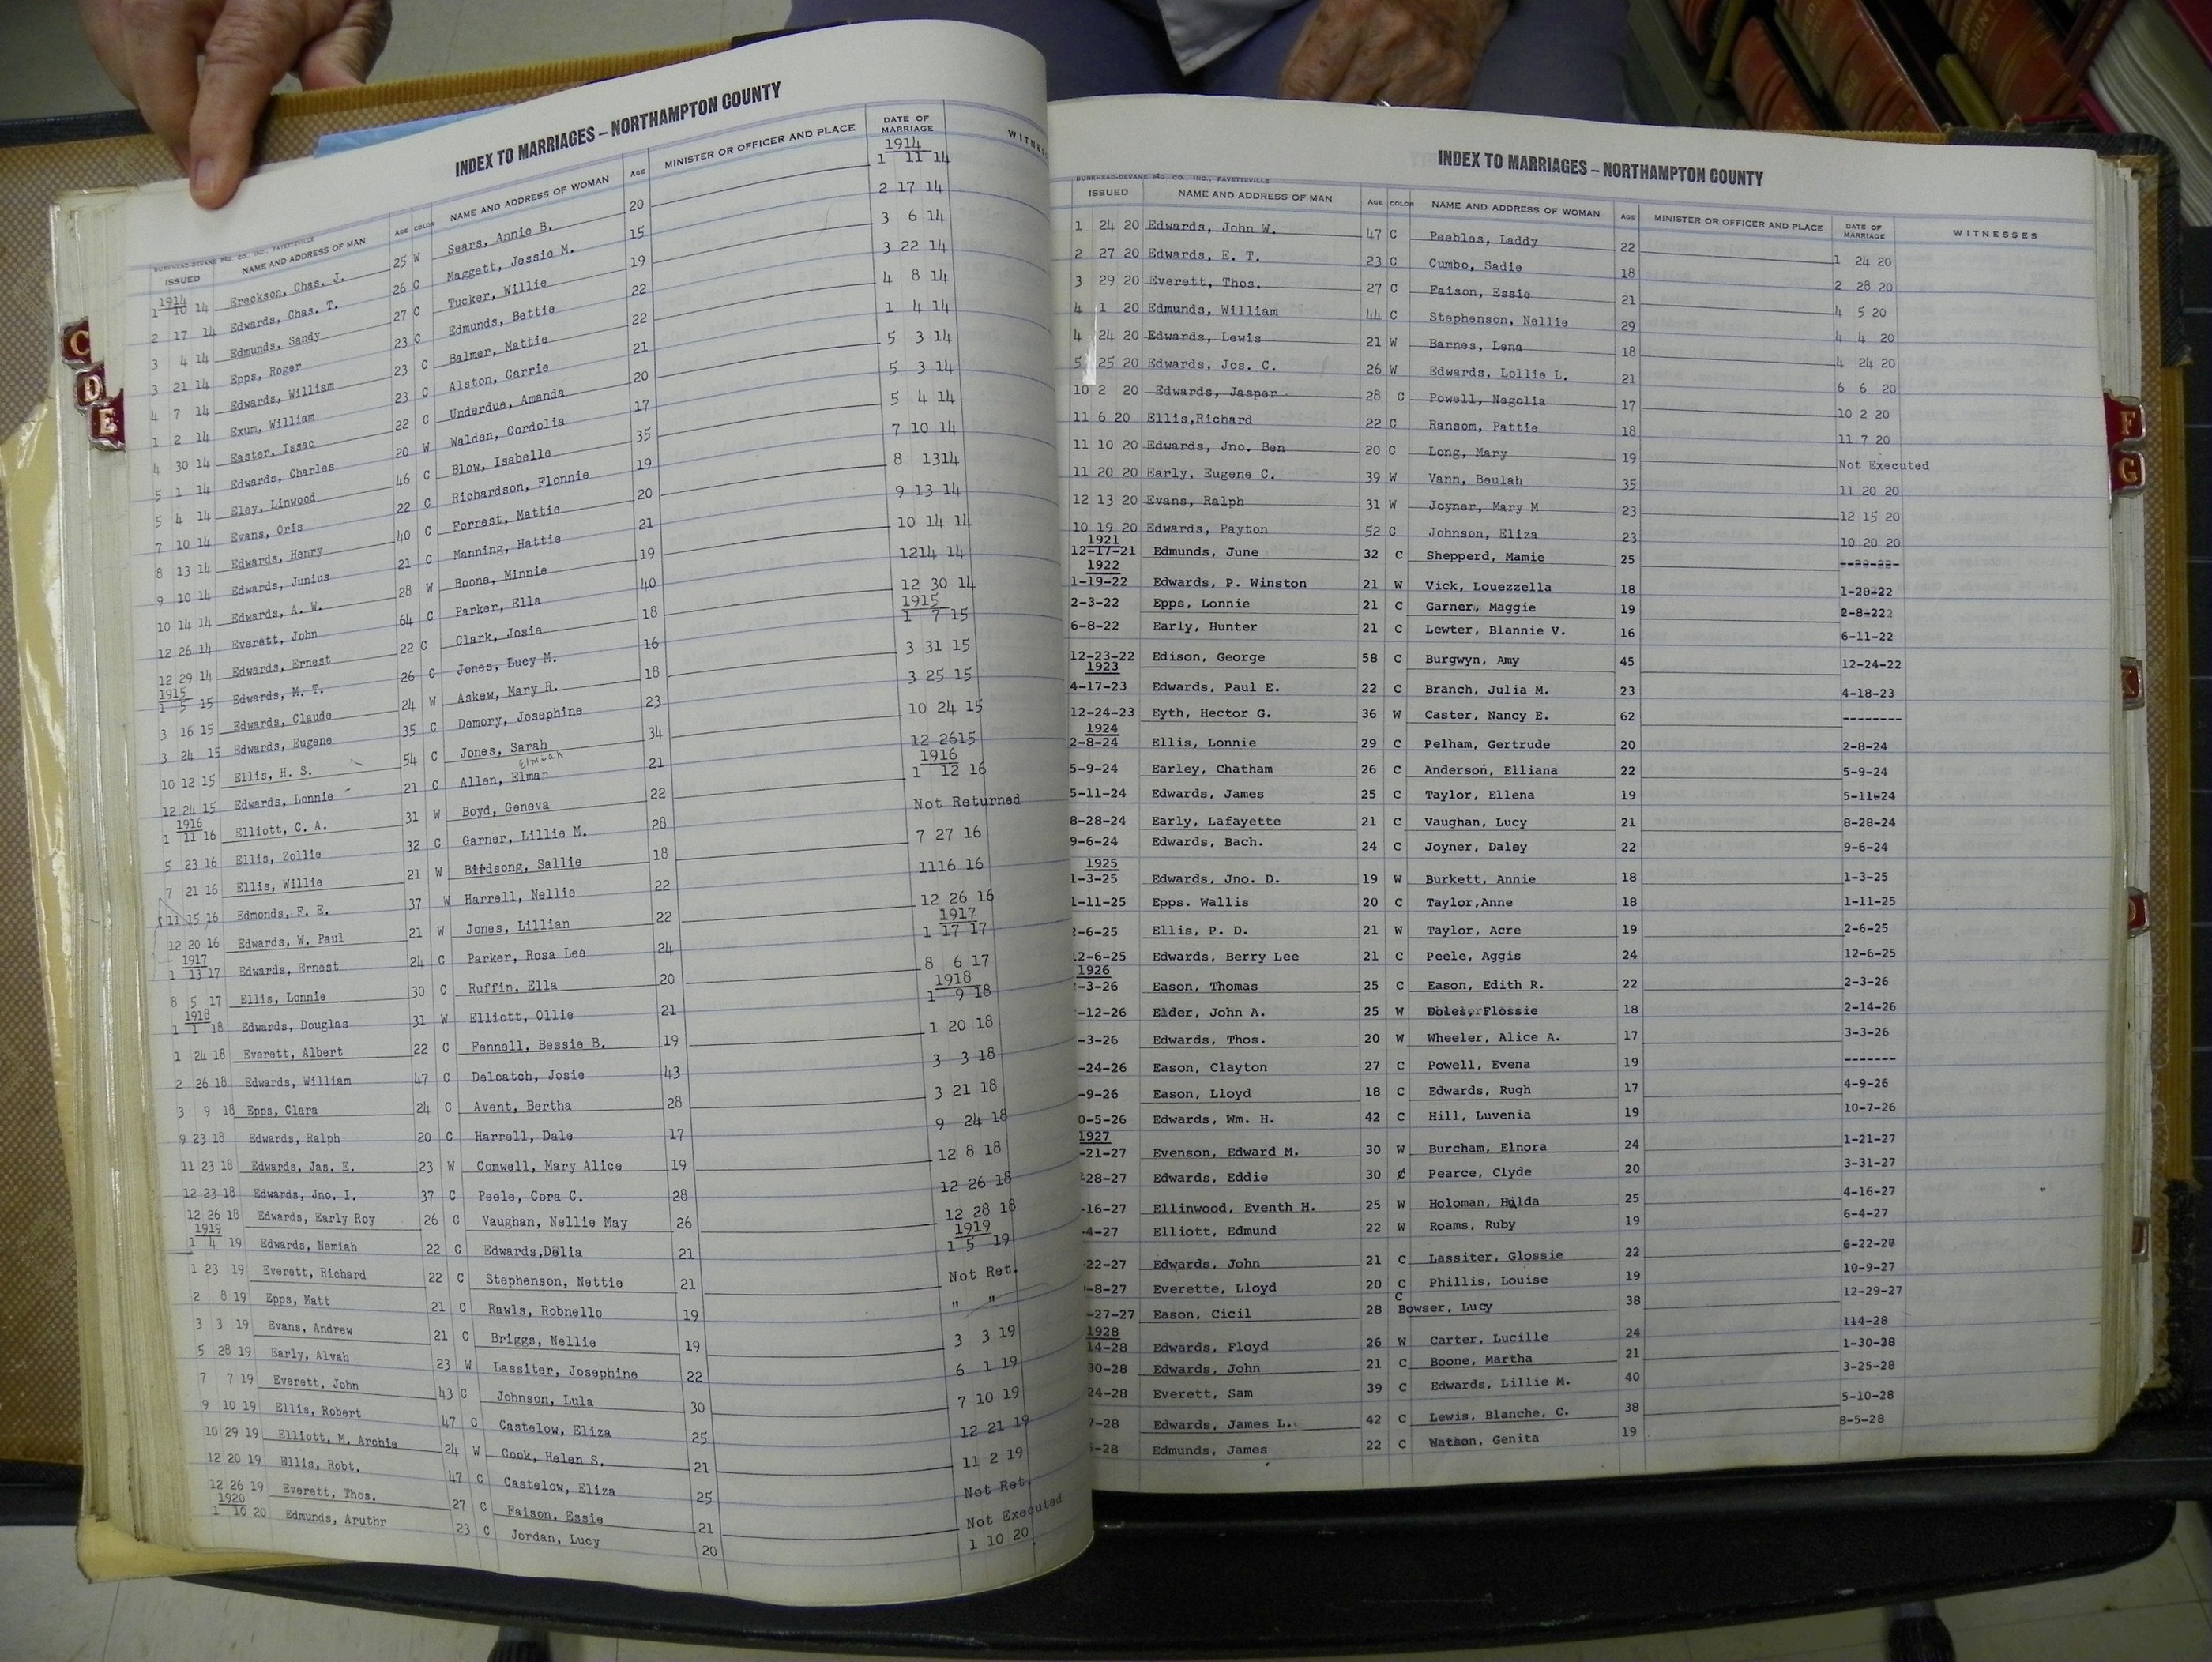 INDEX TO MARRIAGES – NORTHAMPTON COUNTY
BURKHEAD-DEVANE PTG. CO., INC., FAYETTEVILLE
ISSUED NAME AND ADDRESS OF MAN AGE COLOR NAME AND ADDRESS OF WOMAN AGE MINISTER OR OFFICER AND PLACE DATE OF MARRIAGE
1914 1914
1 10 14 Ereckson, Chas. J. 25 W Sears, Annie B. 20 1 11 14
2 17 14 Edwards, Chas. T. 26 C Maggett, Jessie M. 15 2 17 14
3 4 14 Edmunds, Sandy 27 C Tucker, Willie 19 3 6 14
3 21 14 Epps, Roger 23 C Edmunds, Bettie 22 3 22 14
4 7 14 Edwards, William 23 C Balmer, Mattie 22 4 8 14
1 2 14 Exum, William 23 C Alston, Carrie 21 1 4 14
4 30 14 Easter, Issac 22 C Underdue, Amanda 20 5 3 14
5 1 14 Edwards, Charles 20 W Walden, Cordolia 17 5 3 14
5 4 14 Eley, Linwood 46 C Blow, Isabelle 35 5 4 14
7 10 14 Evans, Oris 22 C Richardson, Flonnie 19 7 10 14
8 13 14 Edwards, Henry 40 C Forrest, Mattie 20 8 1314
9 10 14 Edwards, Junius 21 C Manning, Hattie 21 9 13 14
10 14 14 Edwards, A. W. 28 W Boone, Minnie 19 10 14 14
12 26 14 Everett, John 64 C Parker, Ella 40 1214 14
12 29 14 Edwards, Ernest 22 C Clark, Josie 18 12 30 14
1915 1915
1 5 15 Edwards, M. T. 26 C Jones, Lucy M. 16 1 7 15
3 16 15 Edwards, Claude 24 W Askew, Mary R. 18 3 31 15
3 24 15 Edwards, Eugene 35 C Demory, Josephine 23 3 25 15
10 12 15 Ellis, H. S. 54 C Jones, Sarah 34 10 24 15
Elmiah
12 24 15 Edwards, Lonnie 21 C Allen, Elmar 21 12 2615
1916 1916
1 11 16 Elliott, C. A. 31 W Boyd, Geneva 22 1 12 16
5 23 16 Ellis, Zollie 32 C Garner, Lillie M. 28 Not Returned
7 21 16 Ellis, Willie 21 W Birdsong, Sallie 18 7 27 16
11 15 16 Edmonds, F. E. 37 W Harrell, Nellie 22 1116 16
12 20 16 Edwards, W. Paul 21 W Jones, Lillian 22 12 26 16
1917 1917
1 13 17 Edwards, Ernest 24 C Parker, Rosa Lee 24 1 17 17
8 5 17 Ellis, Lonnie 30 C Ruffin, Ella 20 8 6 17
1918 1918
1 1 18 Edwards, Douglas 31 W Elliott, Ollie 21 1 9 18
1 24 18 Everett, Albert 22 C Fennell, Bessie B. 19 1 20 18
2 26 18 Edwards, William 47 C Deloatch, Josie 43 3 3 18
3 9 18 Epps, Clara 24 C Avent, Bertha 28 3 21 18
9 23 18 Edwards, Ralph 20 C Harrell, Dale 17 9 24 18
11 23 18 Edwards, Jas. E. 23 W Conwell, Mary Alice 19 12 8 18
12 23 18 Edwards, Jno. I. 37 C Peele, Cora C. 28 12 26 18
12 26 18 Edwards, Early Roy 26 C Vaughan, Nellie May 26 12 28 18
1919 1919
1 4 19 Edwards, Nemiah 22 C Edwards,Delia 21 1 5 19
1 23 19 Everett, Richard 22 C Stephenson, Nettie 21 Not Ret.
2 8 19 Epps, Matt 21 C Rawls, Robnello 19 " "
3 3 19 Evans, Andrew 21 C Briggs, Nellie 19 3 3 19
5 28 19 Early, Alvah 23 W Lassiter, Josephine 22 6 1 19
7 7 19 Everett, John 43 C Johnson, Lula 30 7 10 19
9 10 19 Ellis, Robert 47 C Castelow, Eliza 25 12 21 19
10 29 19 Elliott, M. Archie 24 W Cook, Helen S. 21 11 2 19
12 20 19 Ellis, Robt. 47 C Castelow, Eliza 25 Not Ret.
12 26 19 Everett, Thos. 27 C Faison, Essie 21 Not Executed
1920
1 10 20 Edmunds, Aruthr 23 C Jordan, Lucy 20 1 10 20
C
D
E
INDEX TO MARRIAGES – NORTHAMPTON COUNTY
BURKHEAD-DEVANE PTG. CO., INC., FAYETTEVILLE
ISSUED NAME AND ADDRESS OF MAN AGE COLOR NAME AND ADDRESS OF WOMAN AGE MINISTER OR OFFICER AND PLACE DATE OF MARRIAGE WITNESSES
1 24 20 Edwards, John W. 47 C Peebles, Laddy 22 1 24 20
2 27 20 Edwards, E. T. 23 C Cumbo, Sadie 18 2 28 20
3 29 20 Everett, Thos. 27 C Faison, Essie 21 4 5 20
4 1 20 Edmunds, William 44 C Stephenson, Nellie 29 4 4 20
4 24 20 Edwards, Lewis 21 W Barnes, Lena 18 4 24 20
5 25 20 Edwards, Jos. C. 26 W Edwards, Lollie L. 21 6 6 20
10 2 20 Edwards, Jasper 28 C Powell, Negolia 17 10 2 20
11 6 20 Ellis,Richard 22 C Ransom, Pattie 18 11 7 20
11 10 20 Edwards, Jno. Ben 20 C Long, Mary 19 Not Executed
11 20 20 Early, Eugene C. 39 W Vann, Beulah 35 11 20 20
12 13 20 Evans, Ralph 31 W Joyner, Mary M 23 12 15 20
10 19 20 Edwards, Payton 52 C Johnson, Eliza 23 10 20 20
1921
12-17-21 Edmunds, June 32 C Shepperd, Mamie 25
1922
1-19-22 Edwards, P. Winston 21 W Vick, Louezzella 18 1-20-22
2-3-22 Epps, Lonnie 21 C Garner, Maggie 19 2-8-222
6-8-22 Early, Hunter 21 C Lewter, Blannie V. 16 6-11-22
12-23-22 Edison, George 58 C Burgwyn, Amy 45 12-24-22
1923
4-17-23 Edwards, Paul E. 22 C Branch, Julia M. 23 4-18-23
12-24-23 Eyth, Hector G. 36 W Caster, Nancy E. 62 --------
1924
2-8-24 Ellis, Lonnie 29 C Pelham, Gertrude 20 2-8-24
5-9-24 Earley, Chatham 26 C Anderson, Elliana 22 5-9-24
5-11-24 Edwards, James 25 C Taylor, Ellena 19 5-11-24
8-28-24 Early, Lafayette 21 C Vaughan, Lucy 21 8-28-24
9-6-24 Edwards, Bach. 24 C Joyner, Daley 22 9-6-24
1925
1-3-25 Edwards, Jno. D. 19 W Burkett, Annie 18 1-3-25
1-11-25 Epps. Wallis 20 C Taylor,Anne 18 1-11-25
2-6-25 Ellis, P. D. 21 W Taylor, Acre 19 2-6-25
12-6-25 Edwards, Berry Lee 21 C Peele, Aggis 24 12-6-25
1926
-3-26 Eason, Thomas 25 C Eason, Edith R. 22 2-3-26
-12-26 Elder, John A. 25 W Flossie 18 2-14-26
-3-26 Edwards, Thos. 20 W Wheeler, Alice A. 17 3-3-26
-24-26 Eason, Clayton 27 C Powell, Evena 19 -------
-9-26 Eason, Lloyd 18 C Edwards, Rugh 17 4-9-26
0-5-26 Edwards, Wm. H. 42 C Hill, Luvenia 19 10-7-26
1927
-21-27 Evenson, Edward M. 30 W Burcham, Elnora 24 1-21-27
-28-27 Edwards, Eddie 30 C Pearce, Clyde 20 3-31-27
-16-27 Ellinwood, Eventh H. 25 W Holoman, Hilda 25 4-16-27
-4-27 Elliott, Edmund 22 W Roams, Ruby 19 6-4-27
-22-27 Edwards, John 21 C Lassiter, Glossie 22 6-22-27
-8-27 Everette, Lloyd 20 C Phillis, Louise 19 10-9-27
-27-27 Eason, Cicil 28 C Bowser, Lucy 38 12-29-27
1928
14-28 Edwards, Floyd 26 W Carter, Lucille 24 114-28
30-28 Edwards, John 21 C Boone, Martha 21 1-30-28
24-28 Everett, Sam 39 C Edwards, Lillie M. 40 3-25-28
7-28 Edwards, James L. 42 C Lewis, Blanche, C. 38 5-10-28
-28 Edmunds, James 22 C Watson, Genita 19 8-5-28
F
G